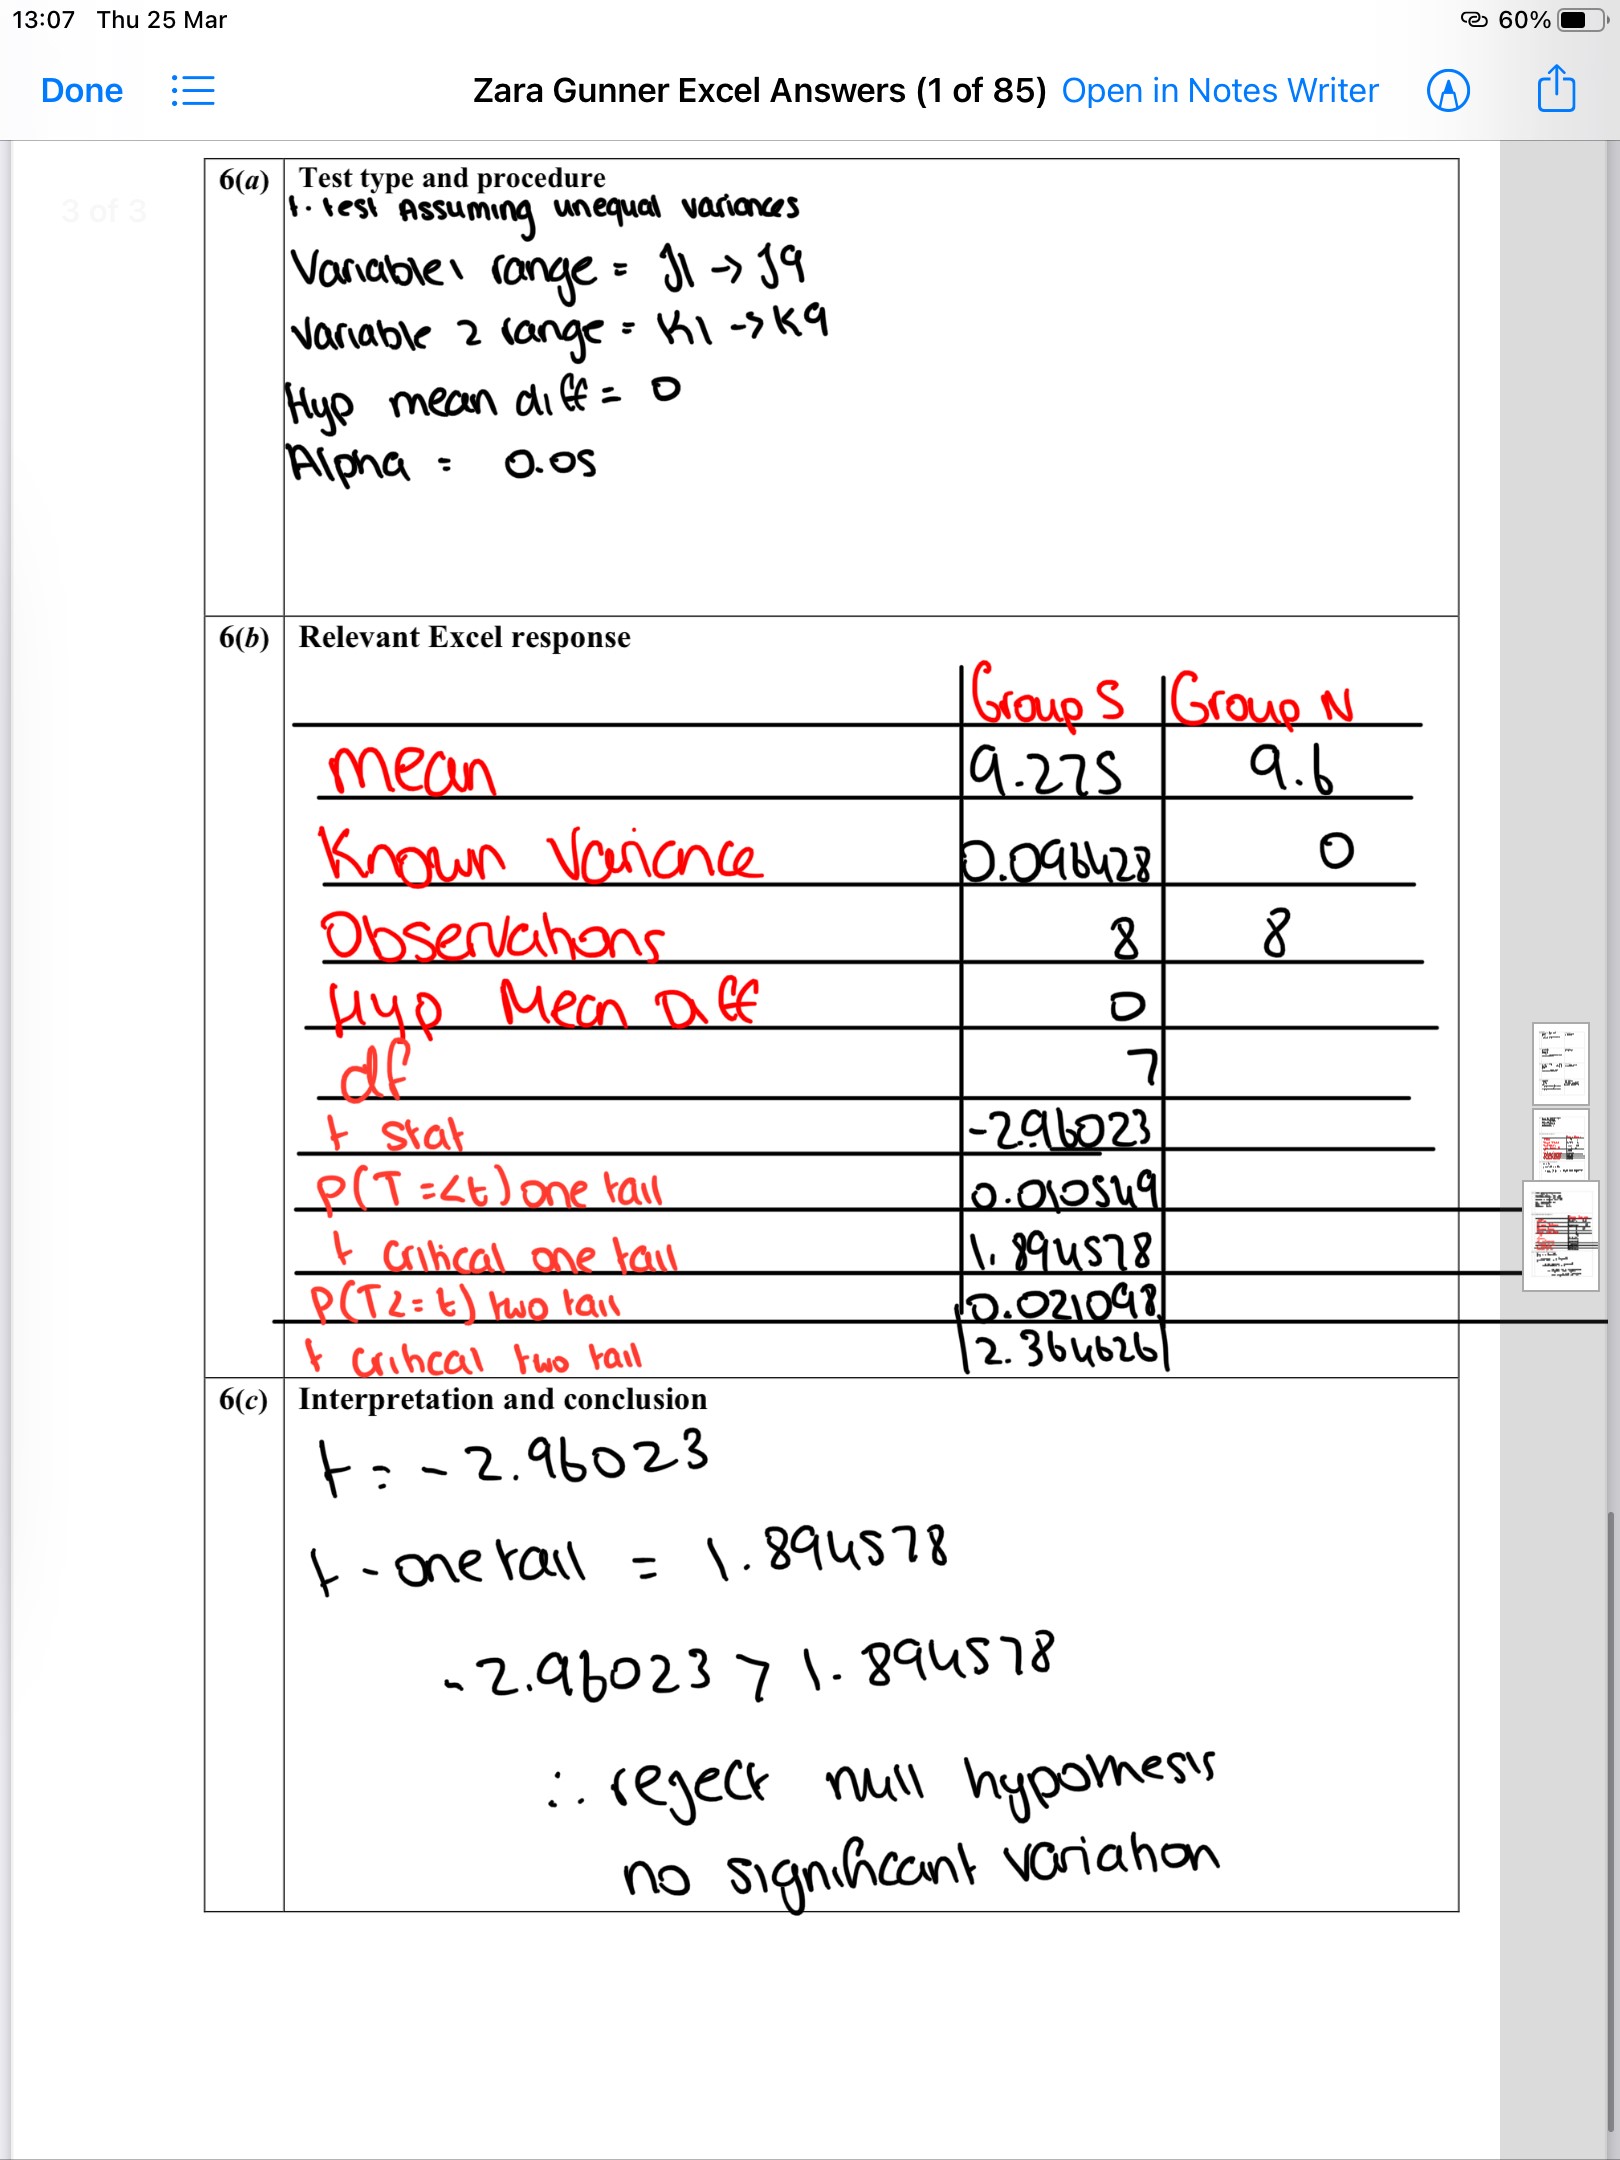 13:07 Thu 25 Mar 60%
Done Zara Gunner Excel Answers (1 of 85) Open in Notes Writer
3 of 3
6(a) Test type and procedure
t-test Assuming unequal variances
Variable 1 range = J1 -> J9
Variable 2 range = K1 -> K9
Hyp mean diff = 0
Alpha = 0.05
6(b) Relevant Excel response
Group S Group N
mean 9.275 9.6
Known Variance 0.096428 0
Observations 8 8
Hyp Mean Diff 0
df 7
t stat -2.96023
P(T=<t) one tail 0.010549
t critical one tail 1.894578
P(T<=t) two tail 0.021098
t critical two tail 2.364626
6(c) Interpretation and conclusion
t = -2.96023
t - one tail = 1.894578
-2.96023 > 1.894578
∴ reject null hypothesis
no significant variation